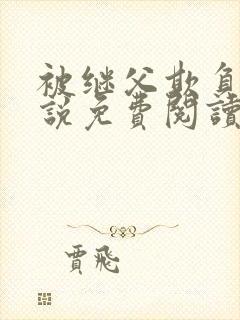 被继父欺负
說免費閱讀
賈飛